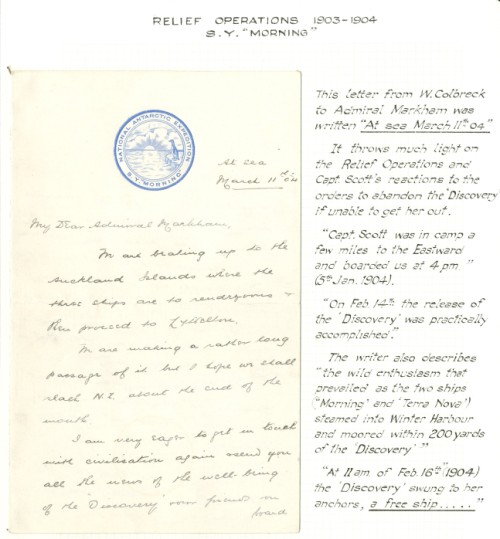 RELIEF OPERATIONS 1903-1904
S.Y. "MORNING"
NATIONAL ANTARCTIC EXPEDITION
S.Y. MORNING
At Sea
March 11th 04
My Dear Admiral Markham,
We are beating up to the
Auckland Islands where the
three ships are to rendezvous &
then proceed to Lyttelton.
We are making a rather long
passage of it but I hope we shall
reach N.Z. about the end of the
month.
I am very eager to get in touch
with civilisation again & send you
all the news of the well-being
of the 'Discovery' our friends on
board
This letter from W. Colbreck
to Admiral Markham was
written "At sea March 11th 04"
It throws much light on
the Relief Operations and
Capt. Scott's reactions to the
orders to abandon the 'Discovery'
if unable to get her out.
"Capt. Scott was in camp a
few miles to the Eastward
and boarded us at 4 pm "
(5th Jan. 1904).
"On Feb 14th the release of
the 'Discovery' was practically
accomplished".
The writer also describes
"the wild enthusiasm that
prevailed as the two ships
('Morning' and 'Terra Nova')
steamed into Winter Harbour
and moored within 200 yards
of the 'Discovery' "
"At 11 am. of Feb. 16th (1904)
the 'Discovery' swung to her
anchors, a free ship....."